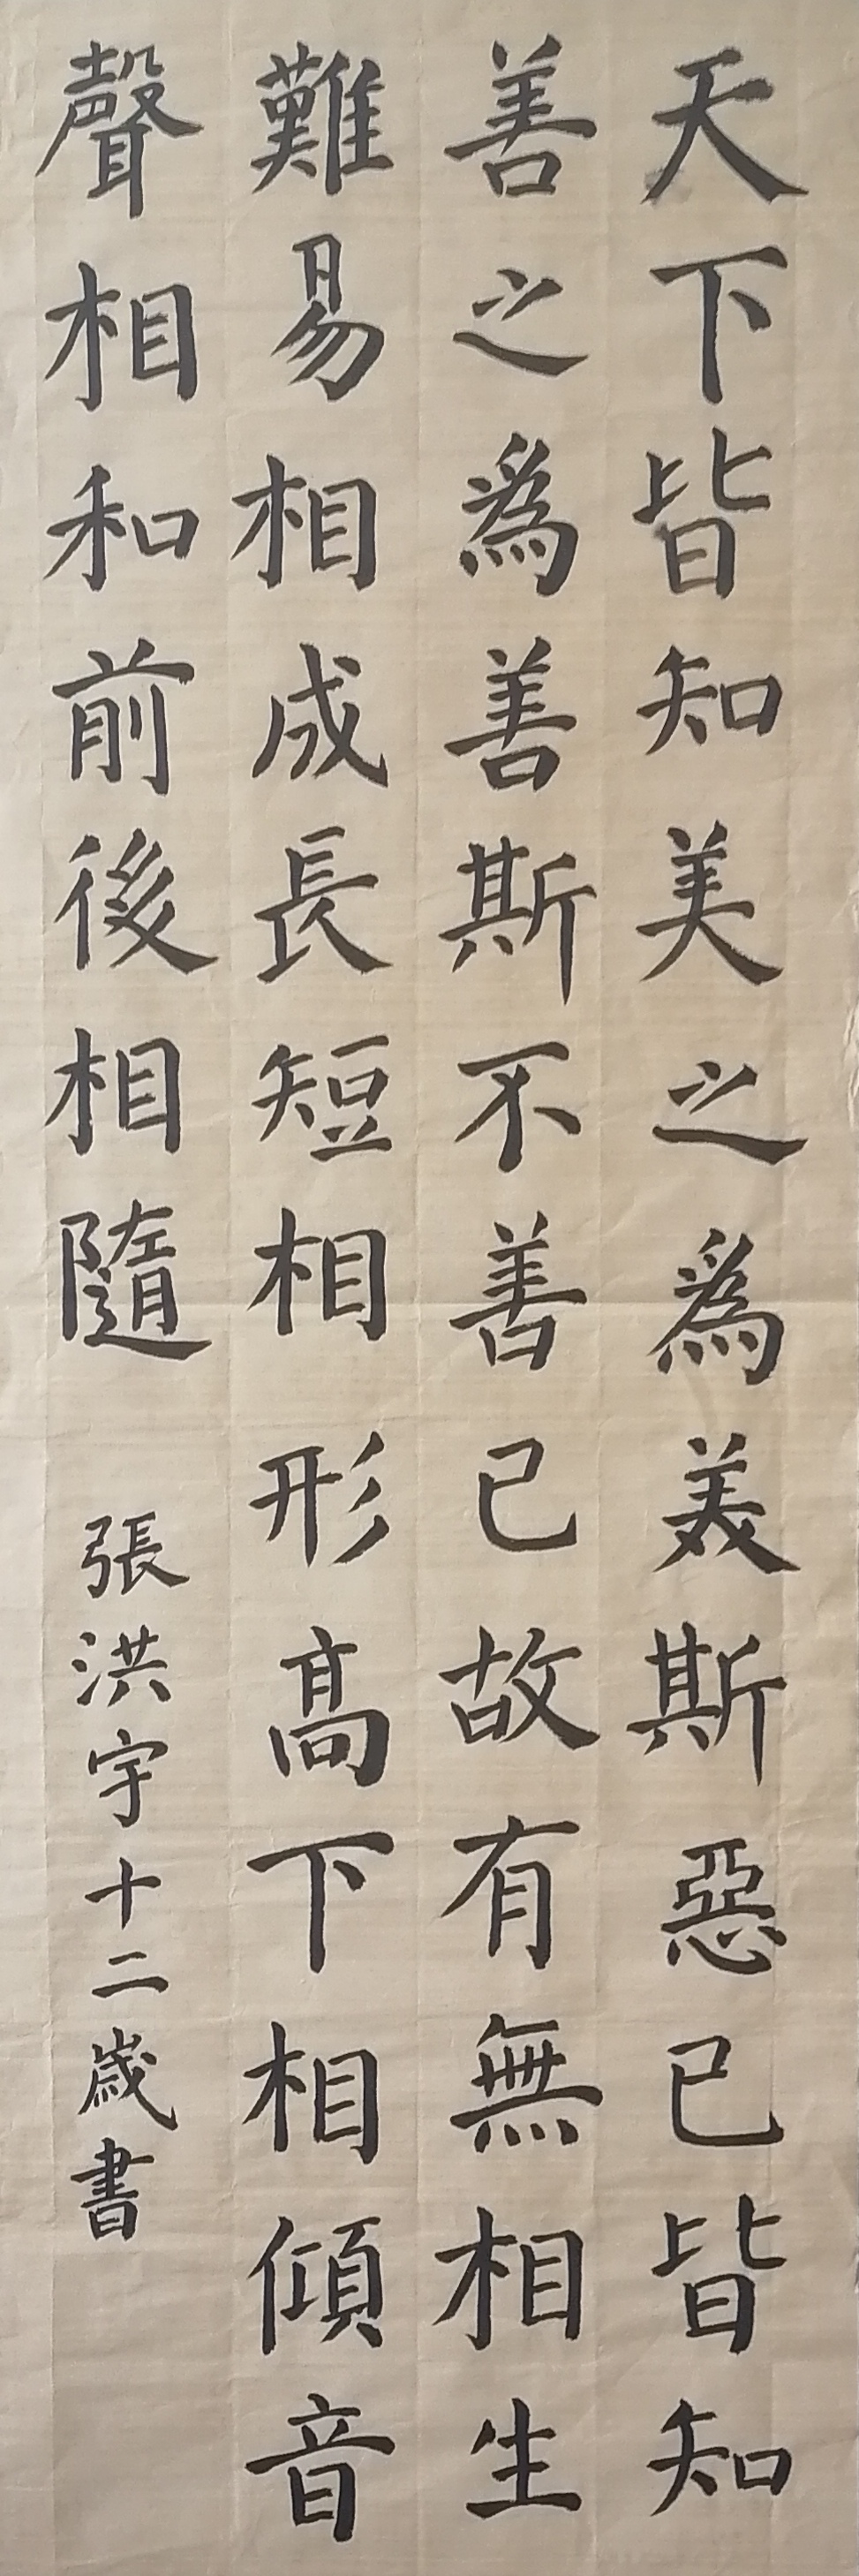 天下皆知美之為美斯惡已皆知
善之為善斯不善已故有無相生
難易相成長短相形高下相傾音
聲相和前後相隨
張洪宇十二歲書